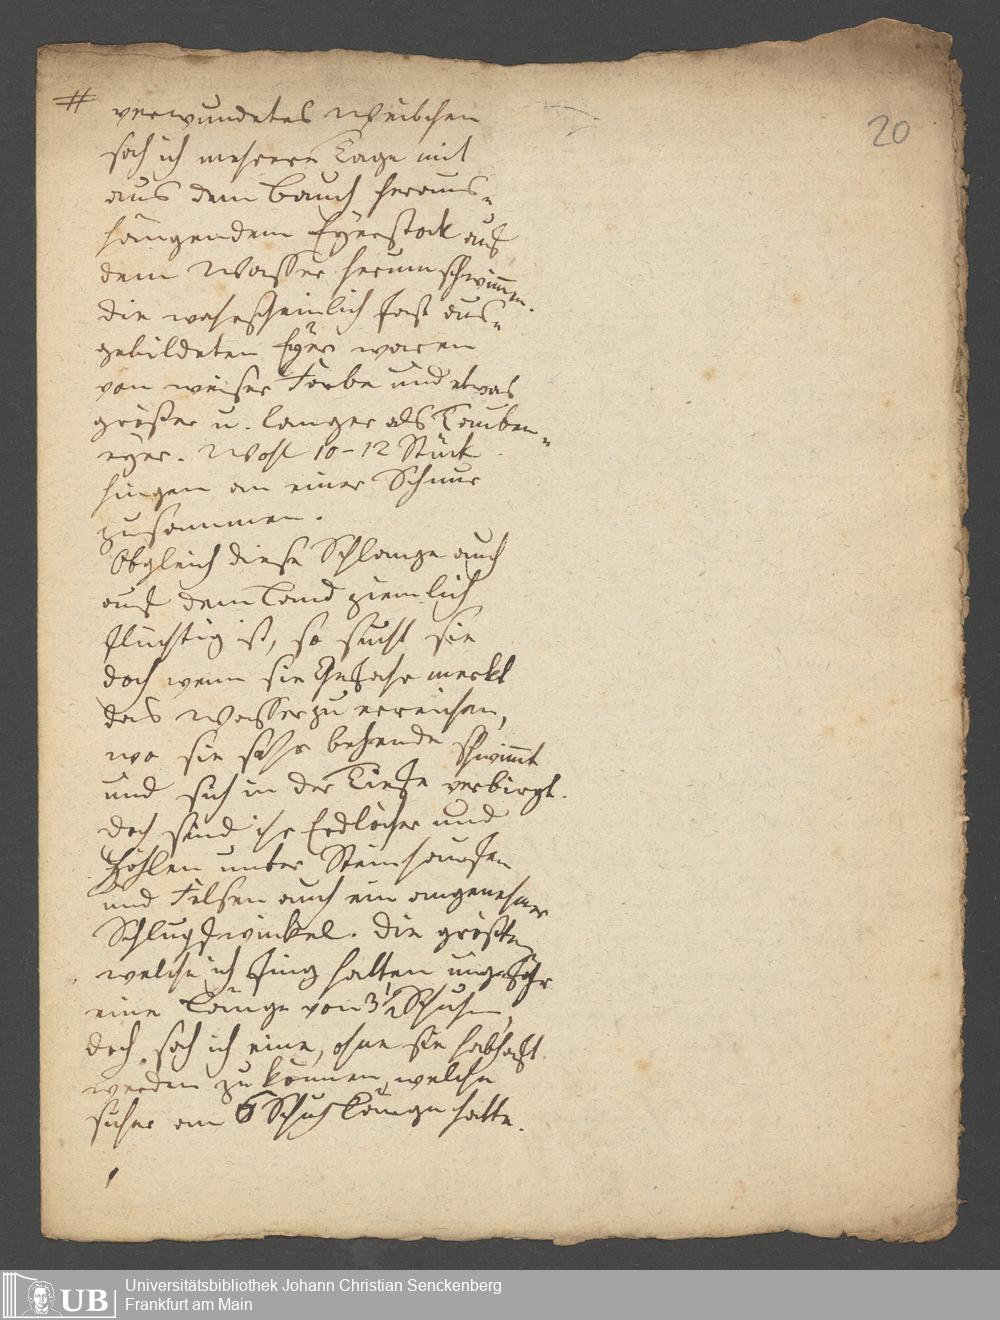 # verwundetes Weibchen
20
sah ich mehrere Tage mit
aus dem Bauch heraus-
hängendem Eyerstock auf
dem Wasser herumschwimmen.
die wahrscheinlich fast aus-
gebildeten Eyer waren
von weiser Farbe und etwas
gröser u. langer als Tauben-
eyer. Wohl 10-12 Stück
hingen an einer Schnur
zusammen.
Obgleich diese Schlange auch
auf dem Land ziemlich
flüchtig ist, so sucht sie
doch wenn sie Gefahr merkt
das Wasser zu erreichen,
wo sie sehr behende schwimmt
und sich in der Tiefe verbirgt.
doch sind ihr Erdlöcher und
Höhlen unter Steinhaufen
und Felsen auch ein angenehmer
Schlupfwinkel. die gröste
welche ich fing hatten ungefähr
eine Länge von 3 1/2 Schuhen,
doch sah ich eine, ohne sie habhaft
werden zu können, welche
sicher an 6 Schuh Länge hatte.
UB
Universitätsbibliothek Johann Christian Senckenberg
Frankfurt am Main